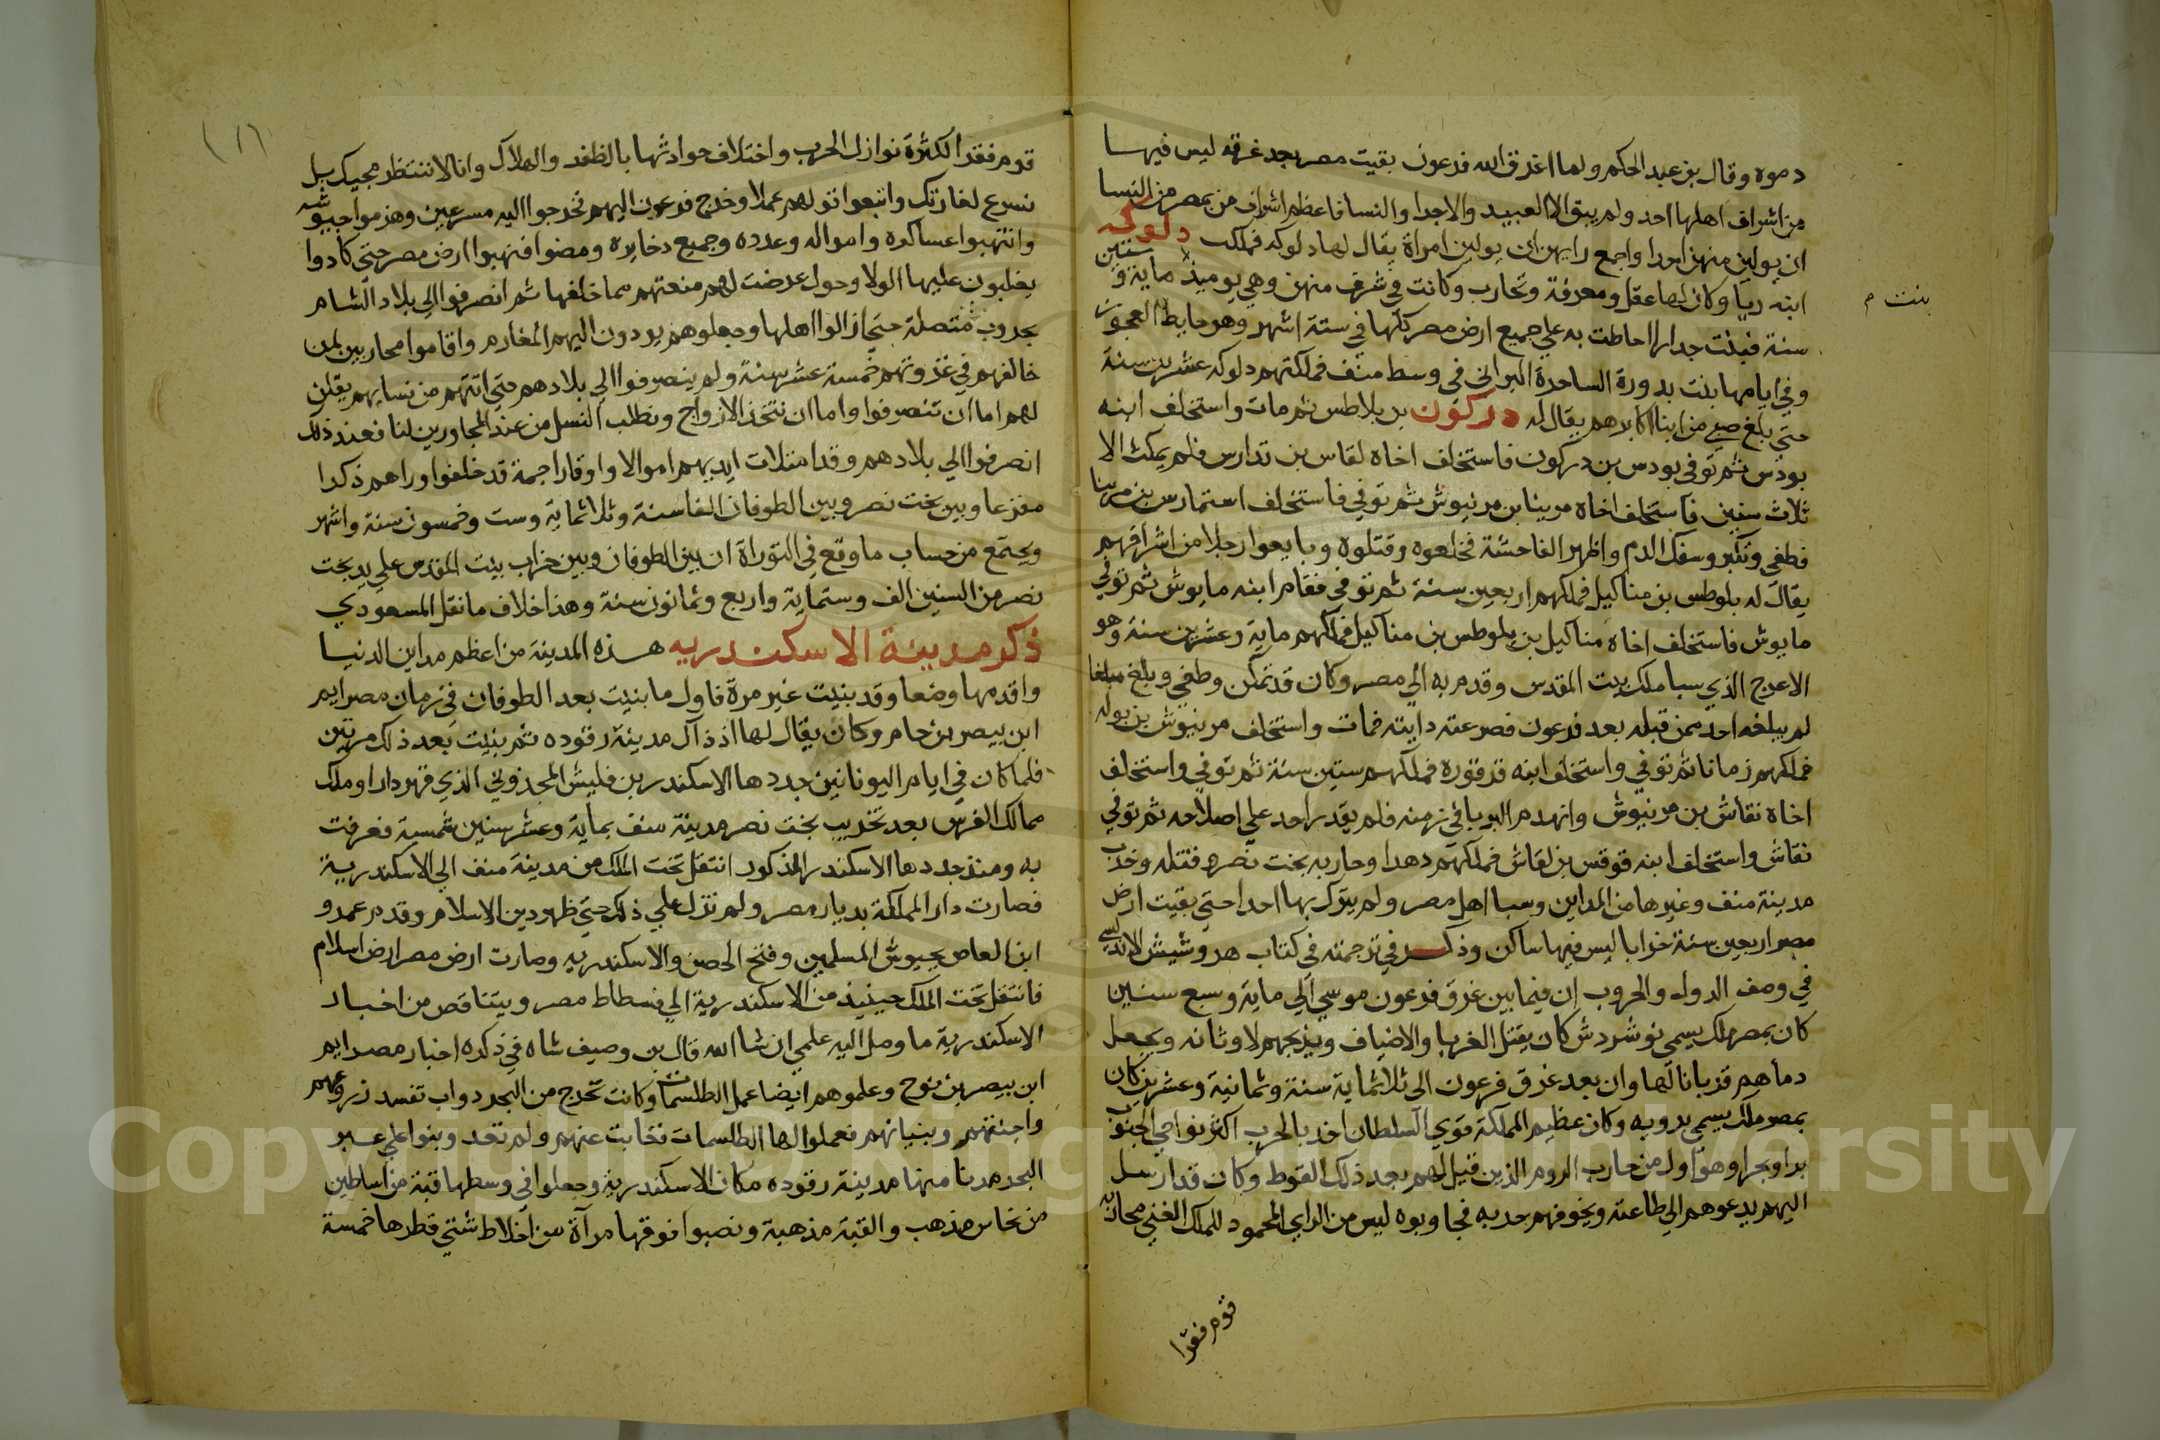 دموه وقال بن عبد الحكم ولما اغرق الله فرعون بقيت مصر بعد غرقه ليس فيها
من اشراف اهلها احد ولم يبق الا العبيد والاجرا والنسا فاعظم اشراف من بمصر من النسا
ان يولين منهن احدا واجمع رايهن ان يولين امراة يقال لها دلوكه فملكت دلوكه
ابنه ريا وكان لها عقل ومعرفة وتجارب وكانت في شرف منهن وهي يوميذ ماية وستين
بنت م
سنة فبنت جدارا احاطت به علي جميع ارض مصر كلها في ستة اشهر وهو حايط العجوز
وفي ايامها بنت بدورة الساحرة البرابي في وسط منف فملكتهم دلوكه عشرين سنة
حتي بلغ صبي من ابنا اكابرهم يقال له دركون بن بلاطس ثم مات واستخلف ابنه
بودس ثم توفي بودس بن دركون فاستخلف اخاه لقاس بن تدارس فلم يمكث الا
ثلاث سنين فاستخلف اخاه مرينا بن مرنيوش ثم توفي فاستخلف استمارس بن مرينا
فطغي وتكبر وسفك الدم واظهر الفاحشة فخلعوه وقتلوه وبايعوا رجلا من اشرافهم
يقال له بلوطس بن مناكيل فملكهم اربعين سنة ثم توفي فقام ابنه مايوش ثم توفي
مايوش فاستخلف اخاه مناكيل بن بلوطس بن مناكيل فملكهم ماية وعشرين سنة وهو
الاعرج الذي سبا ملك بيت المقدس وقدم به الي مصر وكان قد تمكن وطغي وبلغ مبلغا
لم يبلغه احد ممن قبله بعد فرعون فصرعته دابته فمات واستخلف مرنيوش بن بوله
فملكهم زمانا ثم توفي واستخلف ابنه قرقوره فملكهم ستين سنة ثم توفي واستخلف
اخاه نقاش بن مرنيوش وانهدم البربا في زمنه فلم يقدر احد علي اصلاحه ثم توفي
نقاش واستخلف ابنه قوقس بن لقاش فملكهم دهرا وحاربه بخت نصر فقتله وخرب
مدينة منف وغيرها من المداين وسبا اهل مصر ولم يترك بها احدا حتي بقيت ارض
مصر اربعين سنة خرابا ليس فيها ساكن وذكر في ترجمته في كتاب هروشيش الاندلسي
في وصف الدول والحروب ان فيما بين غرق فرعون موسي الي ماية وسبع سنين
كان بمصر ملك يسمي نوشردش كان يقتل الغربا والاضياف ويذبحهم لاوثانه ويجعل
دماهم قربانا لها وان بعد غرق فرعون الي ثلاثماية سنة وثمانية وعشرين كان
بمصر ملك يسمي بروبه وكان عظيم المملكة قوي السلطان اخذ بالحرب اكثر نواحي الجنوب
برا وبحرا وهو اول من حارب الروم الذين قيل لهم بعد ذلك القوط وكان قد ارسل
اليهم يدعوهم الي طاعته ويخوفهم حربه فجاوبوه ليس من الراي المحمود للملك الغني محاربة
قوم فقرا
قوم فقرا لكثرة نوازل الحرب واختلاف حوادثها بالظفر والهلاك وانا لا ننتظر مجيك بل
نسرع لغارتك واتبعوا قولهم عملا وخرج فرعون اليهم فخرجوا اليه مسرعين وهزموا جيوشه
وانتهبوا عساكره وامواله وعدده وجميع دخايره ومضوا فنهبوا ارض مصر حتي كادوا
يغلبون عليها الولا وحول عرضت لهم منعتهم مما خلفها ثم انصرفوا الي بلاد الشام
بحروب متصلة حتي اذلوا اهلها وجعلوهم يودون اليهم المغارم واقاموا محاربين لمن
خالفهم في غزوتهم خمسة عشر سنة ولم ينصرفوا الي بلادهم حتي اتتهم من نسايهم يقلن
لهم اما ان تنصرفوا واما ان نتخذ الازواج ونطلب النسل من عند المجاورين لنا فعند ذلك
انصرفوا الي بلادهم وقد امتلات ايديهم اموالا واوقارا جمة قد خلفوا وراهم ذكرا
مفزعا وبين بخت نصر وبين الطوفان الفا سنة وثلاثماية وست وخمسون سنة واشهر
ويجتمع من حساب ما وقع في التوراة ان بين الطوفان وبين خراب بيت المقدس علي يد بخت
نصر من السنين الف وستماية واربع وثمانون سنة وهذا خلاف ما نقل المسعودي
ذكر مدينة الاسكندريه هذه المدينة من اعظم مداين الدنيا
واقدمها وضعا وقد بنيت غير مرة فاول ما بنيت بعد الطوفان في زمان مصرايم
ابن بيصر بن حام وكان يقال لها اذ ذاك مدينة رقوده ثم بنيت بعد ذلك مرتين
فلما كان في ايام اليونانين جددها الاسكندر بن فليبش المجذوني الذي قهر دارا وملك
ممالك الفرس بعد تخريب بخت نصر مدينة منف بماية وعشر سنين شمسية فعرفت
به ومنذ جددها الاسكندر المذكور انتقل تخت الملك من مدينة منف الي الاسكندرية
فصارت دار المملكة بديار مصر ولم تزل علي ذلك حتي ظهر دين الاسلام وقدم عمرو
ابن العاص بجيوش المسلمين وفتح الحصن والاسكندريه وصارت ارض مصر ارض اسلام
فانتقل تخت الملك حينيذ من الاسكندرية الي فسطاط مصر وسيتاقص من اخبار
الاسكندرية ما وصل اليه علمي ان شا الله قال بن وصيف شاه في ذكره اخبار مصرايم
ابن بيصر بن نوح وعلموهم ايضا عمل الطلسمات وكانت تخرج من البحر دواب تفسد زروعهم
واجنتهم وبنيانهم فعملوا لها الطلسمات فغابت عنهم ولم تعد وبنوا علي عبر
البحر مدنا منها مدينة رقوده مكان الاسكندرية وجعلوا في وسطها قبة من اساطين
من نحاس مذهب والقبة مذهبة ونصبوا فوقها مرآة من اخلاط شتي قطرها خمسة